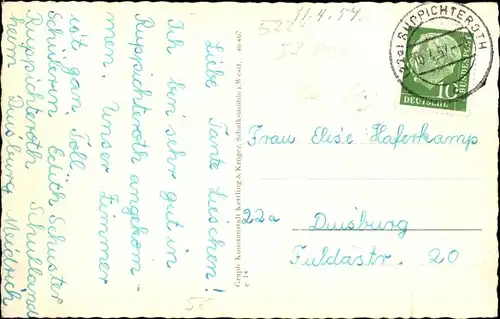 11.4.54
Liebe Tante Luschen!
Ich bin sehr gut in
Ruppichteroth angekom-
men. Unser Zimmer
ist gan. Toll
Schülerin Edith Schuster
Ruppichteroth Schulland
heim Duisburg Meidrich
Graph. Kunstanstalt Kettling & Krüger, Schalksmühle i. Westf. 46 467
e 14
RUPPICHTEROTH
10
DEUTSCHE
BUNDESPOST
Frau Elise Haferkamp
22a Duisburg
Fuldastr. 20